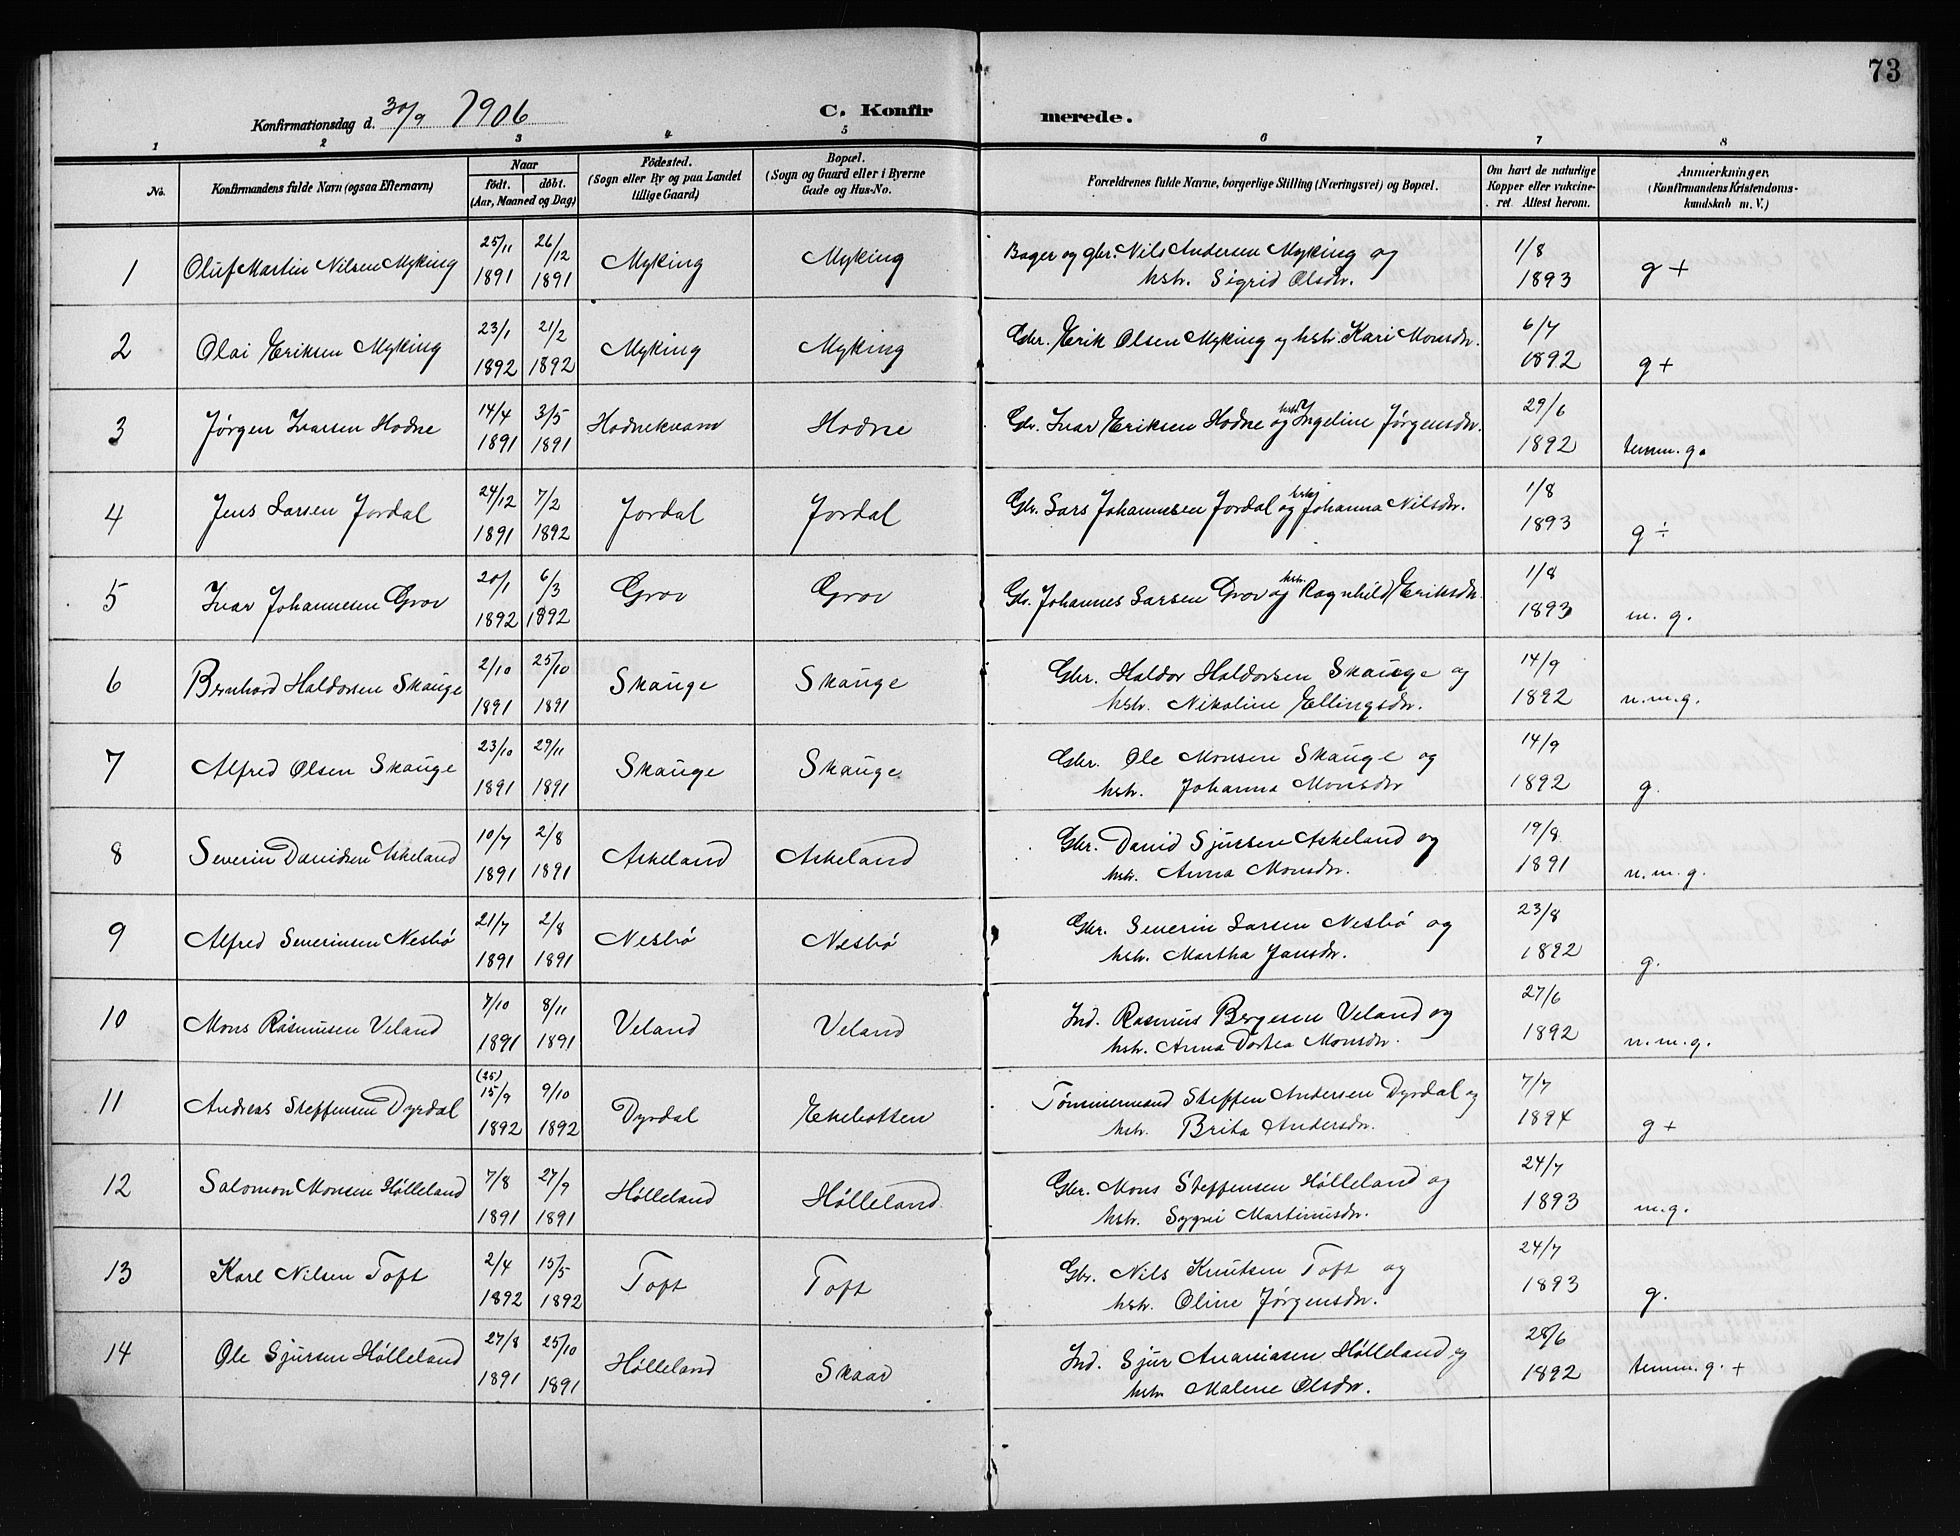 73
Konfirmationsdag d. 30/9 1906 C. Konfirmerede.
1 2 3 4 5 6 7 8
No. | Konfirmandens fulde Navn (ogsaa Efternavn) | Naar födt. döbt. (Aar, Maaned og Dag) | Födested. (Sogn eller By og paa Landet tillige Gaard) | Bopæl. (Sogn og Gaard eller i Byerne Gade og Hus-No. | Forældrenes fulde Navne, borgerlige Stilling (Næringsvei) og Bopæl. | Om havt de naturlige Kopper eller vakcineret. Attest herom. | Anmærkninger. (Konfirmandens Kristendomskundskab m. V.)
1 | Oluf Martin Nilsen Myking | 25/11 1891 | 26/12 1891 | Myking | Myking | Bager og gbr. Nils Andersen Myking og hstr. Sigrid Olsdtr. | 1/8 1893 | g +
2 | Olai Eriksen Myking | 23/1 1892 | 21/2 1892 | Myking | Myking | Gbr. Erik Olsen Myking og hstr. Kari Monsdtr. | 6/7 1892 | g +
3 | Jørgen Ivarsen Hodne | 14/4 1891 | 3/5 1891 | Hodnekvam | Hodne | Gbr. Ivar Eriksen Hodne og hstr. Ingeline Jørgensdtr. | 29/6 1892 | temm. g.
4 | Jens Larsen Jordal | 24/12 1891 | 7/2 1892 | Jordal | Jordal | Gbr. Lars Johannesen Jordal og hstr. Johanna Nilsdtr. | 1/8 1893 | g ÷
5 | Ivar Johannesen Grov | 20/1 1892 | 6/3 1892 | Grov | Grov | Gbr. Johannes Larsen Grov og hstr. Ragnhild Eriksdtr. | 1/8 1893 | m. g.
6 | Bernhard Haldorsen Skauge | 2/10 1891 | 25/10 1891 | Skauge | Skauge | Gbr. Haldor Haldorsen Skauge og hstr. Nikoline Ellingsdtr. | 14/9 1892 | n. m. g.
7 | Alfred Olsen Skauge | 23/10 1891 | 29/11 1891 | Skauge | Skauge | Gbr. Ole Monsen Skauge og hstr. Johanna Monsdtr | 14/9 1892 | g.
8 | Severin Davidsen Askeland | 10/7 1891 | 2/8 1891 | Askeland | Askeland | Gbr. David Sjursen Askeland og hstr. Anna Monsdtr. | 19/8 1891 | n. m. g.
9 | Alfred Severinsen Nesbø | 21/7 1891 | 2/8 1891 | Nesbø | Nesbø | Gbr. Severin Larsen Nesbø og hstr. Martha Jansdtr. | 23/8 1892 | g.
10 | Mons Rasmusen Veland | 7/10 1891 | 8/11 1891 | Veland | Veland | Ind. Rasmus Bergesen Veland og hstr. Anna Dortea Monsdtr. | 27/6 1892 | n. m. g.
11 | Andreas Steffensen Dyrdal | (25) 15/9 1892 | 9/10 1892 | Dyrdal | Ekebotten | Tømmermand Steffen Andersen Dyrdal og hstr. Brita Andersdtr. | 7/7 1894 | g +
12 | Salomon Monsen Hølleland | 7/8 1891 | 27/9 1891 | Hølleland | Hølleland. | Gbr. Mons Steffensen Hølleland og hstr. Sygni Martinusdtr. | 24/7 1893 | m. g.
13 | Karl Nilsen Toft | 2/4 1892 | 15/5 1892 | Toft | Toft | Gbr. Nils Knutsen Toft og hstr. Oline Jørgensdtr. | 24/7 1893 | g.
14 | Ole Sjursen Hølleland | 27/8 1891 | 25/10 1891 | Hølleland | Skaar | Ind. Sjur Ananiasen Hølleland og hstr Malene Olsdtr. | 28/6 1892 | temm. g. +